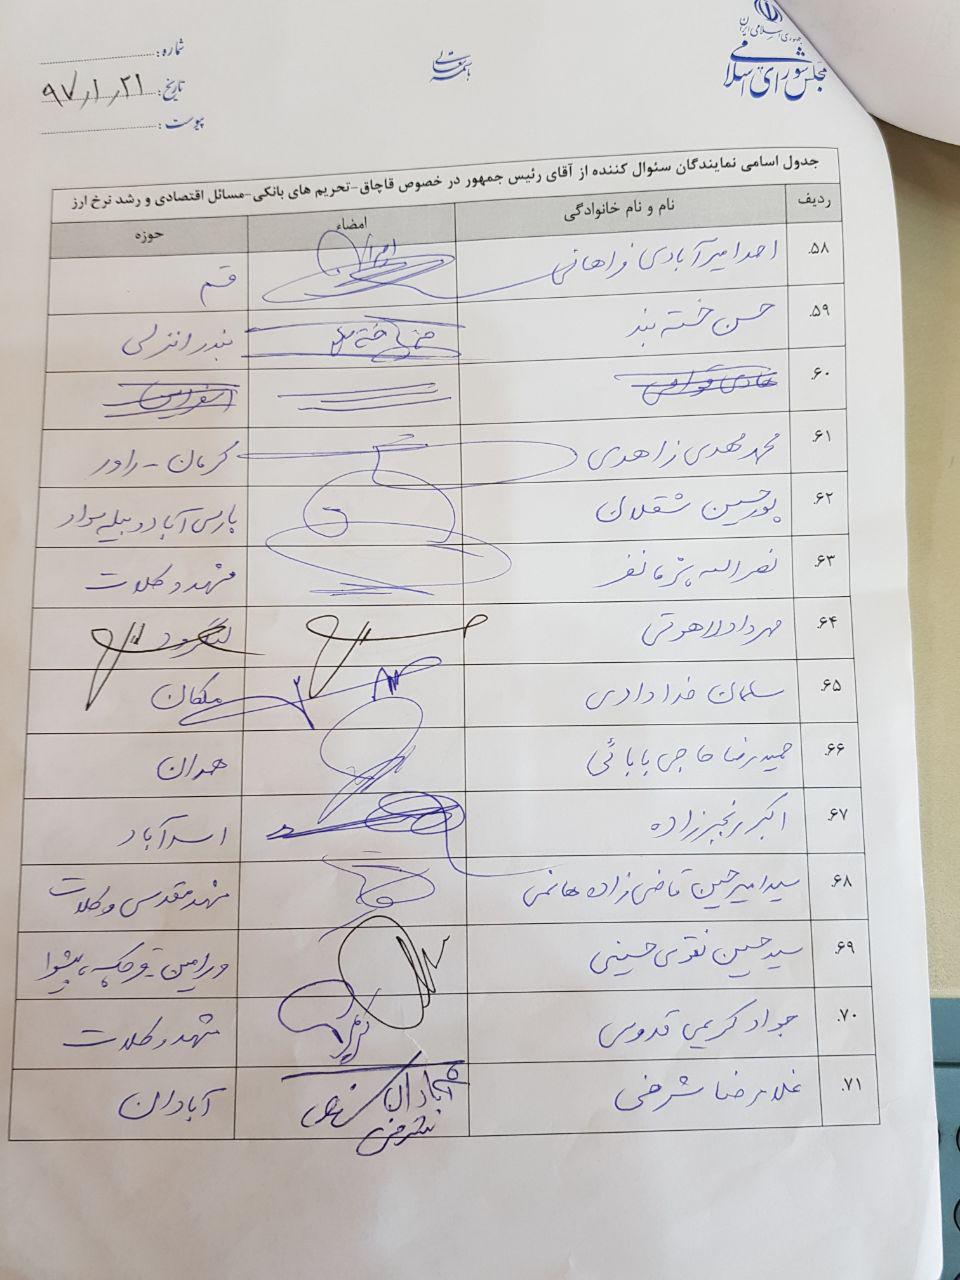 جمهوری اسلامی ایران
مجلس شورای اسلامی
باسمه تعالی
شماره:
تاریخ: ۹۷/۱/۲۱
پیوست:
جدول اسامی نمایندگان سئوال کننده از آقای رئیس جمهور در خصوص قاچاق-تحریم های بانکی-مسائل اقتصادی و رشد نرخ ارز
ردیف نام و نام خانوادگی امضاء حوزه
.۵۸ احد امیرآبادی فراهانی قم
.۵۹ حسن خسته بند بندر انزلی
.۶۰ هادی قوامی اسفراین
.۶۱ محمد مهدی زاهدی کرمان - راور
.۶۲ پورحسین شقلان پارس آباد و بیله سوار
.۶۳ نصراله پژمانفر مشهد و کلات
.۶۴ مهرداد لاهوتی لنگرود
.۶۵ سلمان خدادادی ملکان
.۶۶ حمیدرضا حاجی بابائی همدان
.۶۷ اکبر رنجبرزاده اسدآباد
.۶۸ سید امیرحسین قاضی زاده هاشمی مشهد مقدس و کلات
.۶۹ سید حسین نقوی حسینی ورامین - قرچک، پیشوا
.۷۰ جواد کریمی قدوسی مشهد و کلات
.۷۱ غلامرضا شرفی آبادان